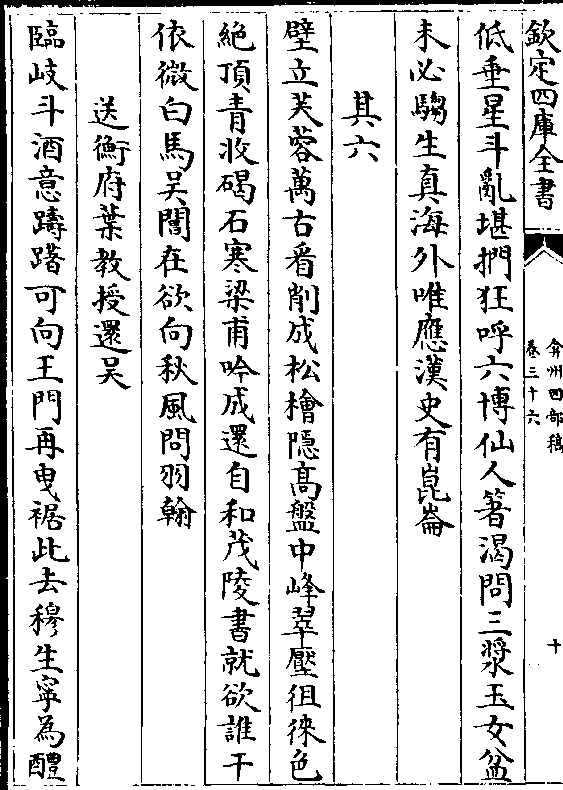 欽定四庫全書
弇州四部稿
卷三十六
十
低垂星斗亂堪捫狂呼六博仙人箸渴問三漿玉女盆
未必騶生真海外唯應漢史有崑崙
其六
壁立芙蓉萬古看削成松檜隱高盤中峰翠壓徂徠色
絶頂青收碣石寒梁甫吟成還自和茂陵書就欲誰干
依微白馬吴閶在欲向秋風問羽翰
送衡府葉教授還吴
臨岐斗酒意躊躇可向王門再曵裾此去穆生寧為醴